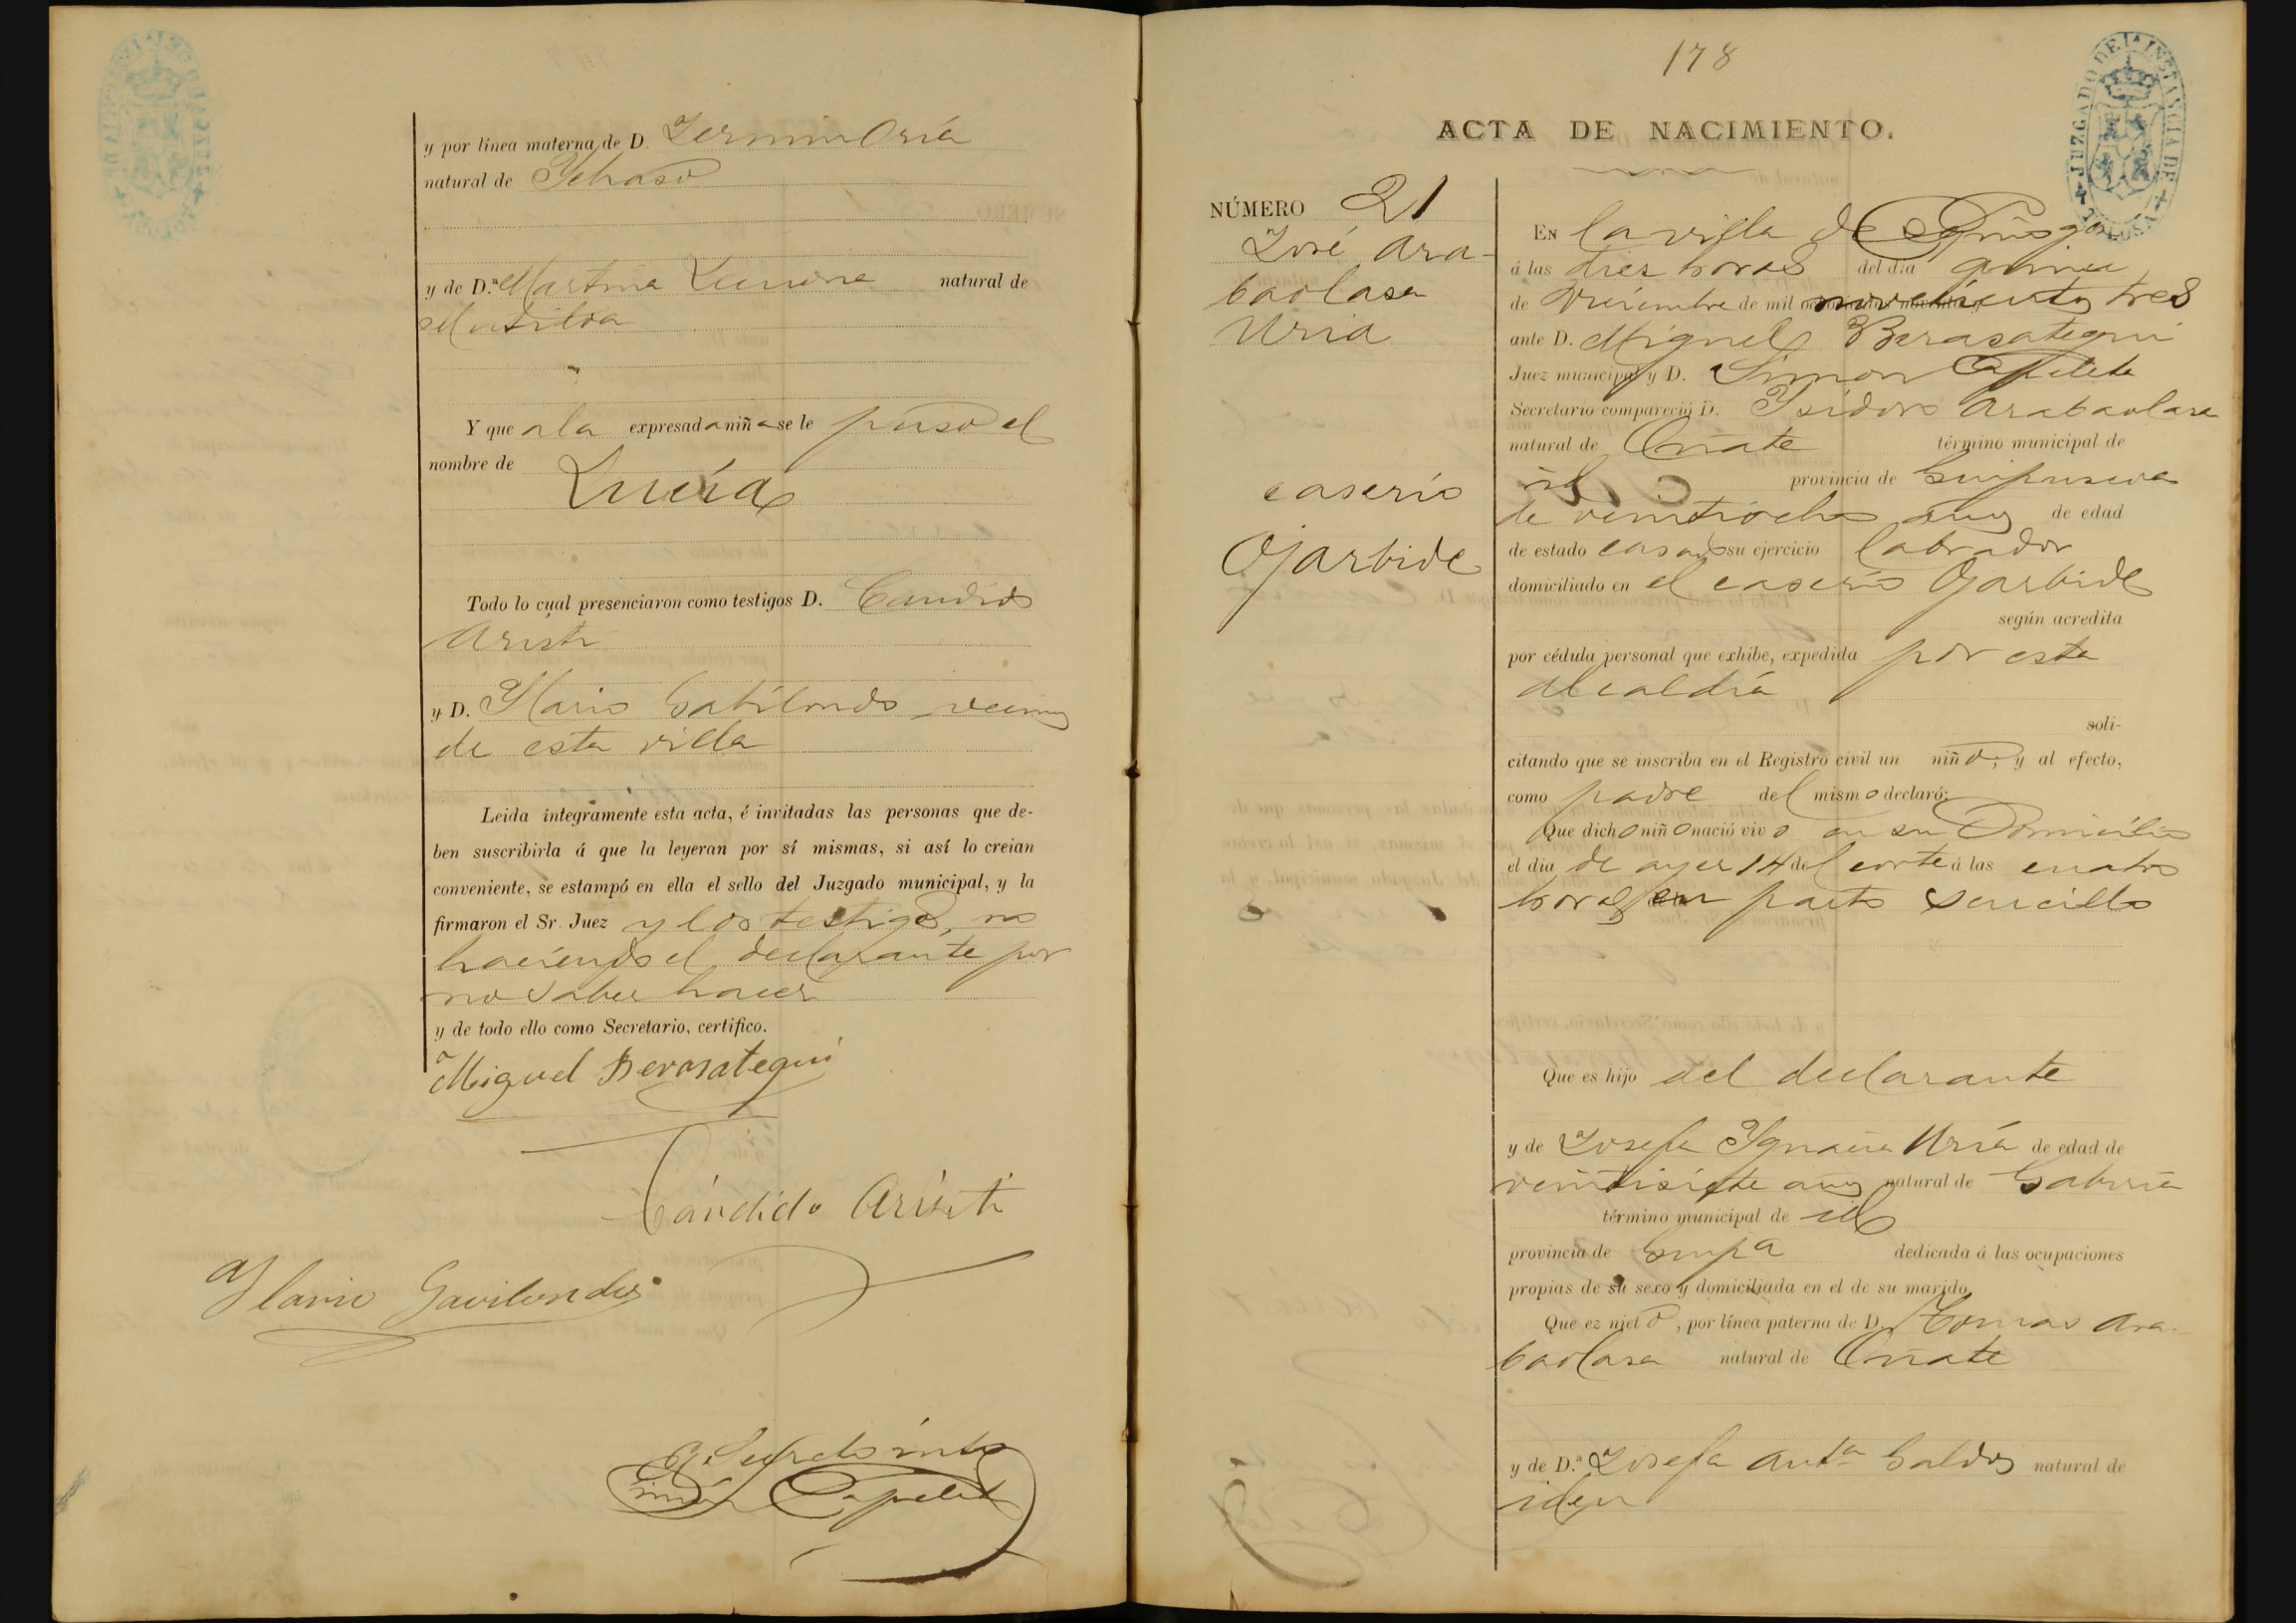 y por línea materna de D. Fermin Oria
natural de Ychaso
y de D.ª Martina Lecuona natural de
Mutiloa
Y que a la expresada niña se le puso el
nombre de
Lucía
Todo lo cual presenciaron como testigos D. Candido
Aristi
y D. Ylario Gabilondo vecinos
de esta villa
Leida íntegramente esta acta, é invitadas las personas que de-
ben suscribirla á que la leyeran por sí mismas, si así lo creian
conveniente, se estampó en ella el sello del Juzgado municipal, y la
firmaron el Sr. Juez y los testigos, no
haciendo el declarante por
no saber hacer
y de todo ello como Secretario, certifico.
Miguel Berasategui
Cándido Aristi
Ylario Gavilondo
178
JUZGADO DE 1ª INSTANCIA DE TOLOSA
ACTA DE NACIMIENTO.
NÚMERO 21
José Ara-
baolasa
Uria
caserio
Ojarbide
En la villa de
á las diez horas del dia quince
de Diciembre de mil novecientos tres
ante D. Miguel Berasategui
Juez municipal y D. Simon Capelete
Secretario compareció D. Ysidoro Arabaolasa
natural de Oñate término municipal de
id provincia de Guipuscoa
de veintiocho años de edad
de estado casado su ejercicio labrador
domiciliado en el caserio Ojarbide
según acredita
por cédula personal que exhibe, expedida por esta
Alcaldía
soli-
citando que se inscriba en el Registro civil un niño, y al efecto,
como padre del mismo declaró:
Que dicho niño nació vivo en su Domicilio
el dia de ayer 14 del corte á las cuatro
horas en parto sencillo
Que es hijo del declarante
y de Josefa Ygnacia Uría de edad de
veintisiete años natural de Gabiria
término municipal de id
provincia de Guipa dedicada á las ocupaciones
propias de su sexo y domiciliada en el de su marido
Que ez nieto, por línea paterna de D. Tomas Ara-
baolasa natural de Oñate
y de D.ª Josefa Antª Galdos natural de
idem